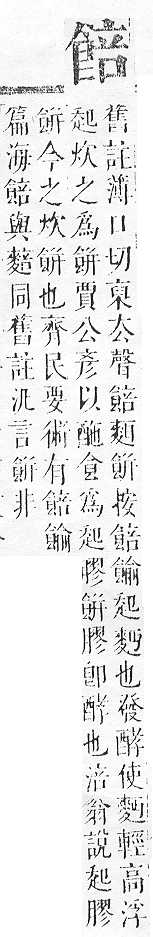 餢
舊註薄口切裒厺聲餢麪餅按餢起麪也發酵使麪輕高浮
起炊之爲餅賈公彥以酏食爲起膠餅膠卽酵也涪翁說起膠
餅今之炊餅也齊民要術有餢
篇海餢與䴺同舊註汎言餅非